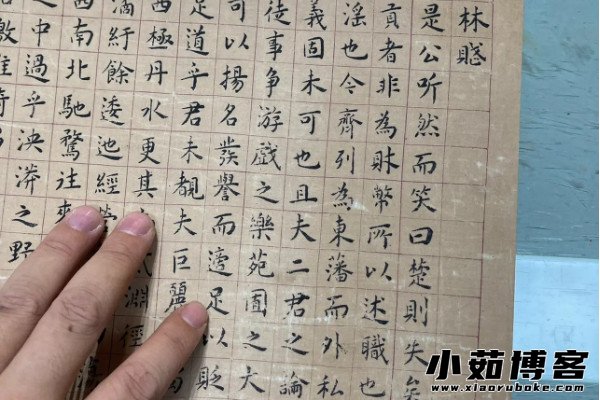 林賦
是公听然而笑曰楚則失
貢者非為財幣所以述職也
滛也今齊列為東藩而外私
義固未可也且夫二君之論
徒事争游戲之樂苑囿之大
可以揚名發譽而適足以貶
足道乎君未覩夫巨麗
西極丹水更其淵徑
潏紆餘逶迤經營
西南北馳騖往來
之中過乎泱漭之野
小茹博客
www.xiaoruboke.com